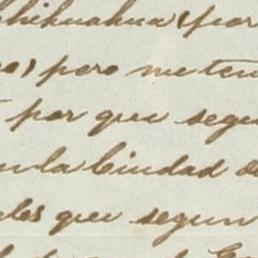 Chihuahua (por
pero me ten
por que segu
en la Ciudad de
ales que segun